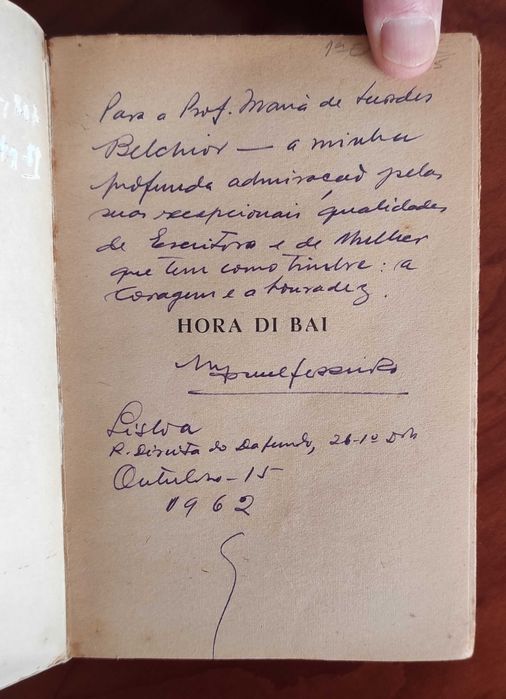 Para a Prof. Maria de Lurdes
Belchior — a minha
profunda admiração pelas
suas excepcionais qualidades
de Escritora e de Mulher
que tem como timbre: a
coragem e a honradez.
HORA DI BAI
Manuel Ferreira
Lisboa
R. Direita do Dafundo, 26-1º Dto
Outubro - 15
1962